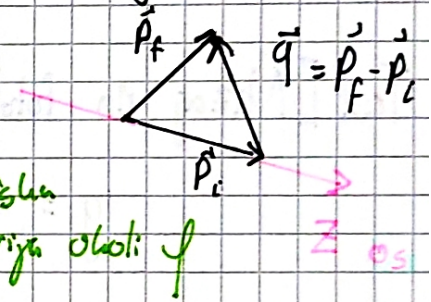 p⃗_f
q⃗ = p⃗_f - p⃗_i
p⃗_i
okoli φ
Z os